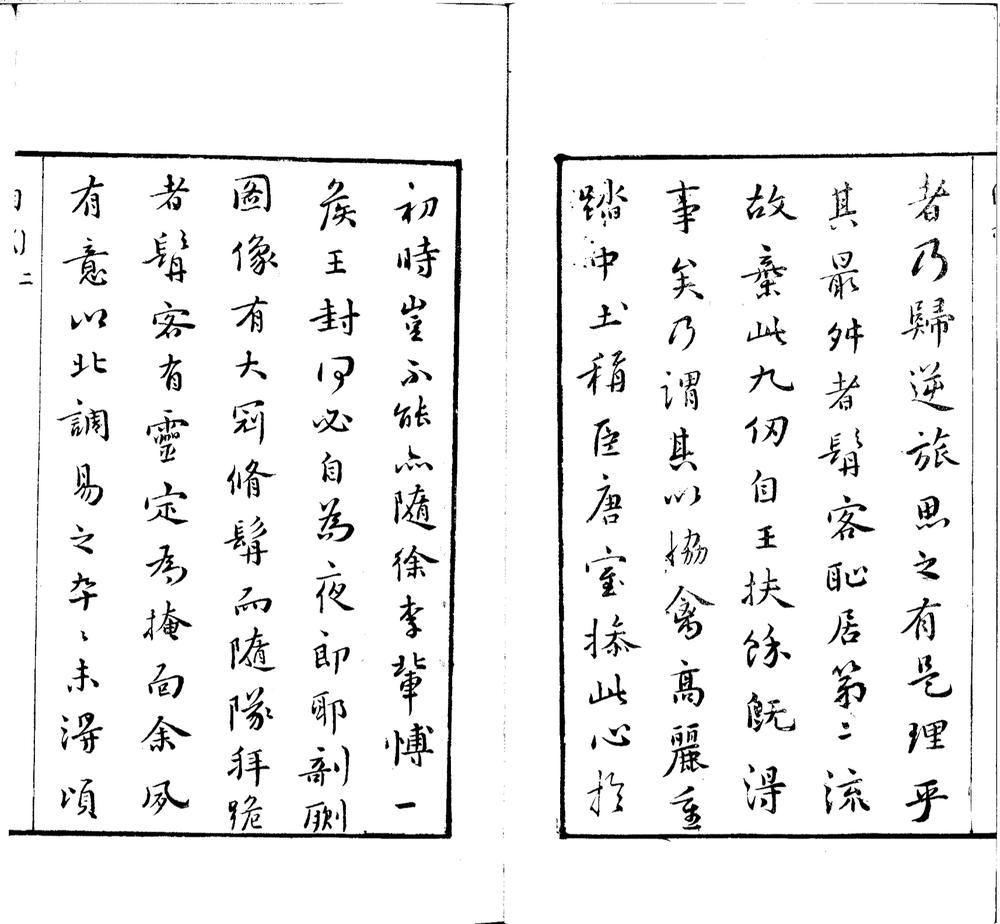 者乃歸逆旅思之有是理乎
其最舛者髯客恥居第二流
故棄此九仞自王扶餘既得
事矣乃謂其以協禽高麗重
踏中土稱臣唐室揆此心於
初時豈不能亦隨徐李輩博一
侯王封何必自為夜郎耶剞劂
圖像有大冠脩髯而隨隊拜跪
者髯客有靈定為掩面余夙
有意以北調易之卒卒未得頃
二